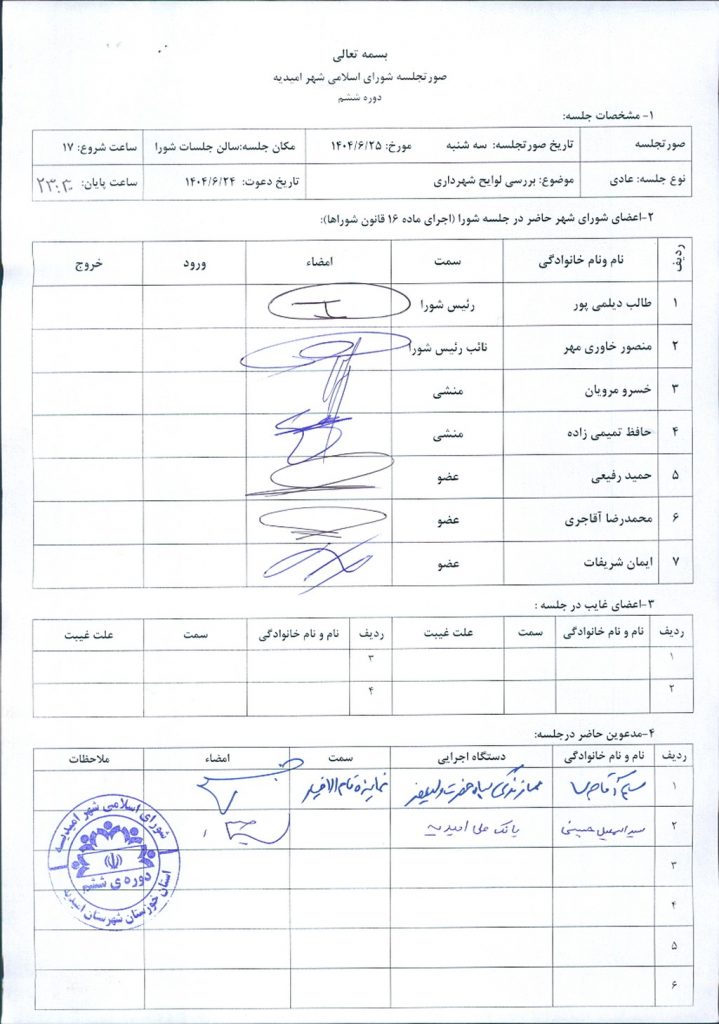 بسمه تعالی
صورتجلسه شورای اسلامی شهر امیدیه
دوره ششم
۱- مشخصات جلسه:
صورتجلسه تاریخ صورتجلسه: سه شنبه مورخ: ۱۴۰۴/۶/۲۵ مکان جلسه:سالن جلسات شورا ساعت شروع: ۱۷
نوع جلسه: عادی موضوع: بررسی لوایح شهرداری تاریخ دعوت: ۱۴۰۴/۶/۲۴ ساعت پایان: ۲۳:۳۰
۲-اعضای شورای شهر حاضر در جلسه شورا (اجرای ماده ۱۶ قانون شوراها):
ردیف نام ونام خانوادگی سمت امضاء ورود خروج
۱ طالب دیلمی پور رئیس شورا
۲ منصور خاوری مهر نائب رئیس شورا
۳ خسرو مرویان منشی
۴ حافظ تمیمی زاده منشی
۵ حمید رفیعی عضو
۶ محمدرضا آقاجری عضو
۷ ایمان شریفات عضو
۳-اعضای غایب در جلسه :
ردیف نام و نام خانوادگی سمت علت غیبت ردیف نام و نام خانوادگی سمت علت غیبت
۱ ۳
۲ ۴
۴-مدعوین حاضر درجلسه:
ردیف نام و نام خانوادگی دستگاه اجرایی سمت امضاء ملاحظات
۱
۲ سید اسمعیل حسینی بانک ملی امیدیه
۳
۴
۵
۶
شورای اسلامی شهر امیدیه
دوره ی ششم
استان خوزستان شهرستان امیدیه